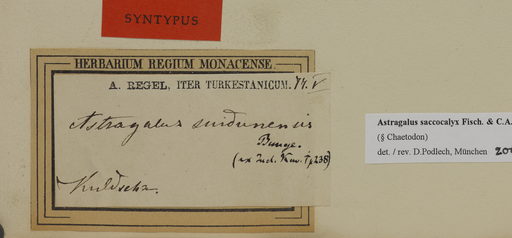 SYNTYPUS
HERBARIUM REGIUM MONACENSE
A. REGEL, ITER TURKESTANICUM.
Astragalus suidunensis
Bunge.
Kuldscha.
Astragalus saccocalyx Fisch. & C.A.
(§ Chaetodon)
det. / rev. D.Podlech, München